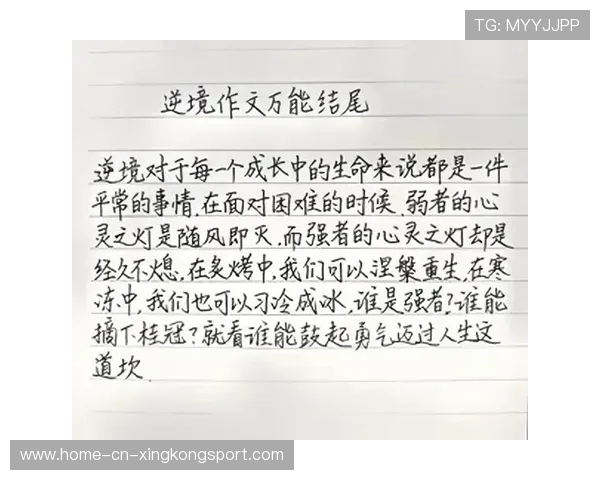 TG: MYYJJPP
逆境作文万能结尾
逆境对于每一个成长中的生命来说都是一件
平常的事情.在面对困难的时候.弱者的心
灵之灯是随风即灭.而强者的心灵之灯却是
经久不熄.在炙烤中,我们可以涅槃重生.在寒
冻中,我们也可以习冷成冰,谁是强者?谁能
摘下桂冠?就看谁能鼓起勇气迈过人生这
道坎.
www-home-cn-xingkongsport.com/